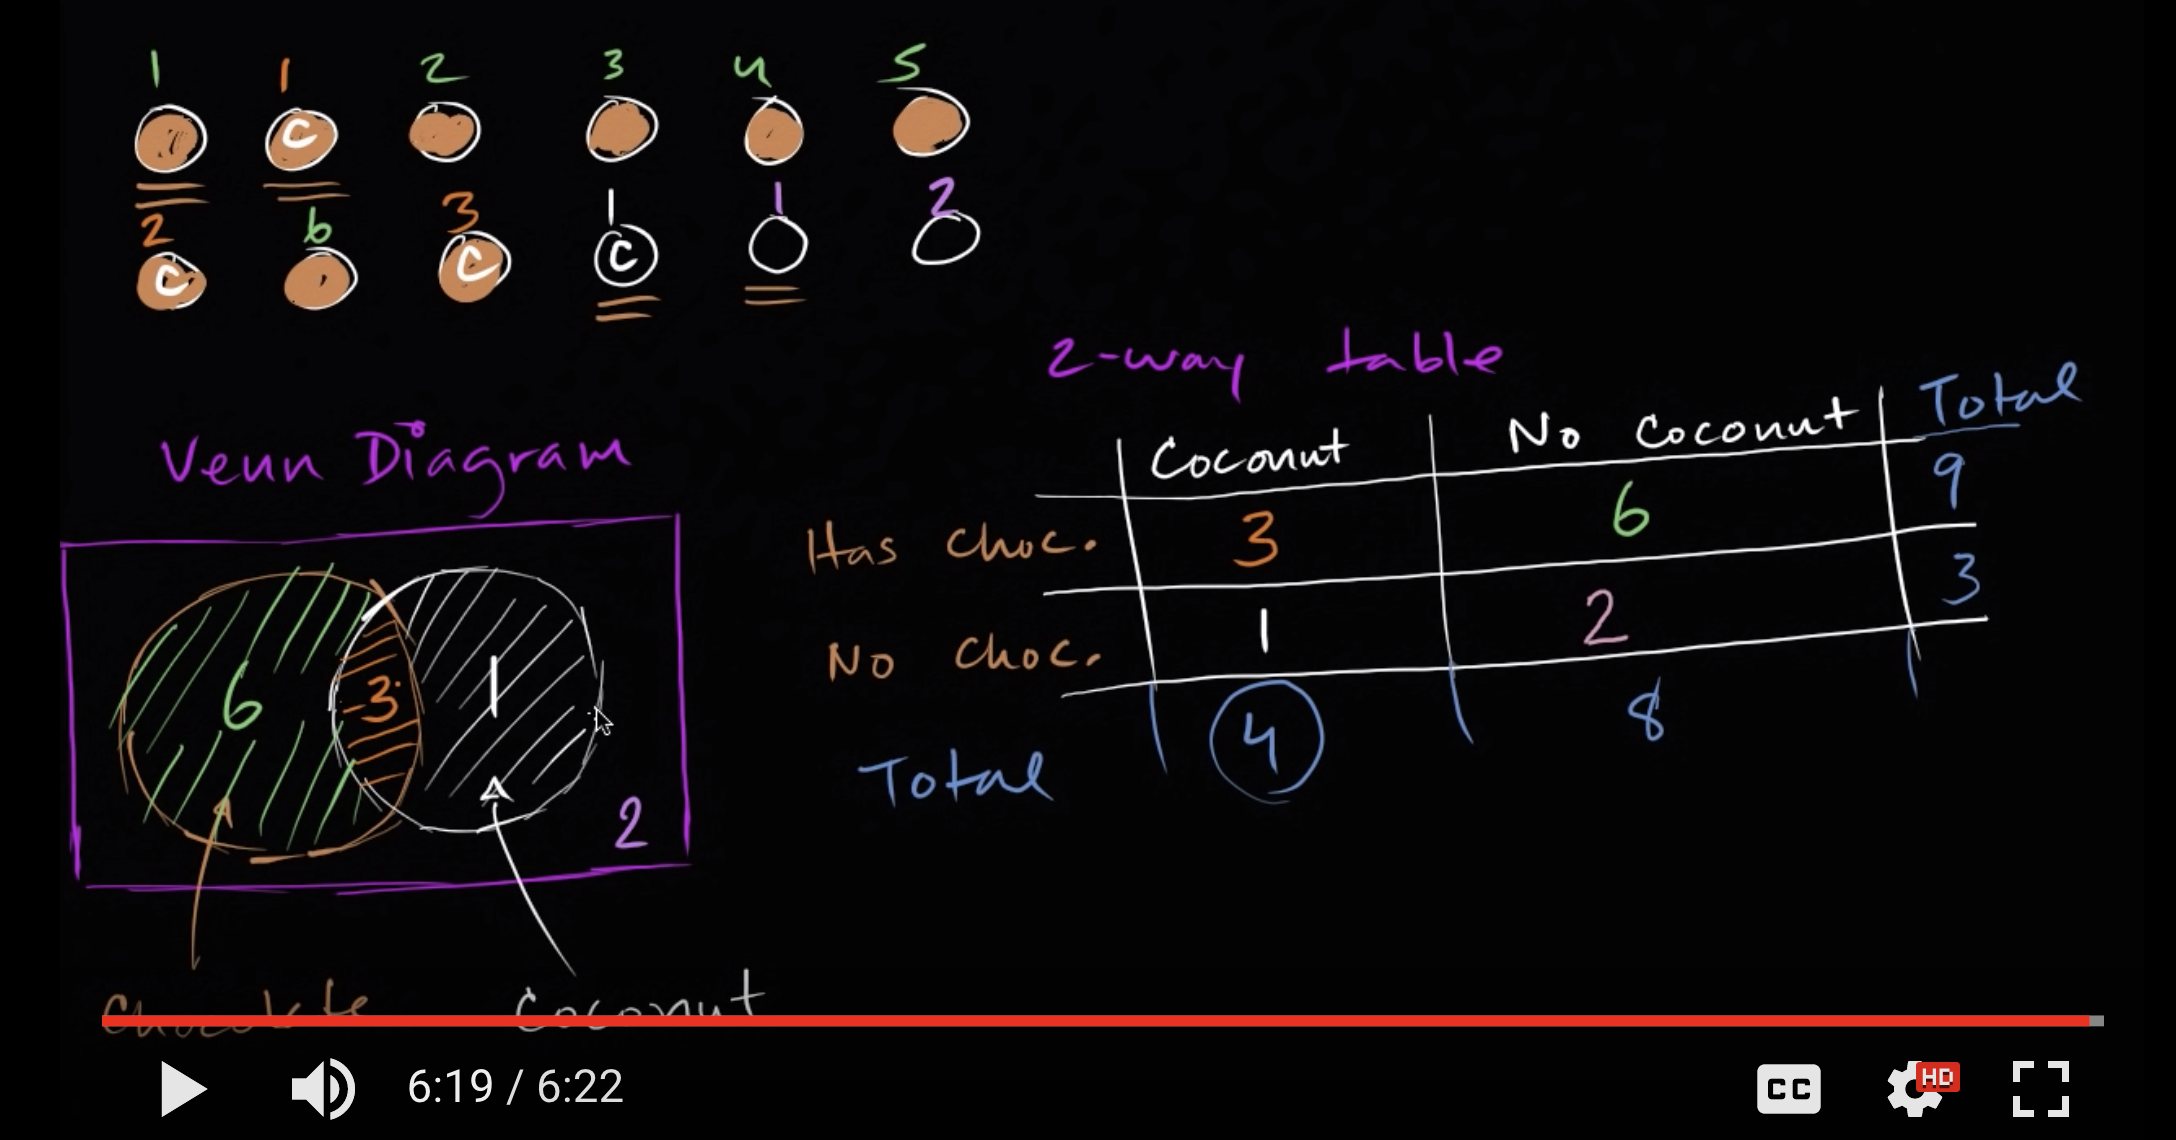 1 1 2 3 4 5
C
2 6 3 1 1 2
C C C
2-way table
Coconut No Coconut Total
Has choc. 3 6 9
No choc. 1 2 3
Total 4 8
Venn Diagram
6 3 1
2
Chocolate Coconut
6:19 / 6:22 CC HD